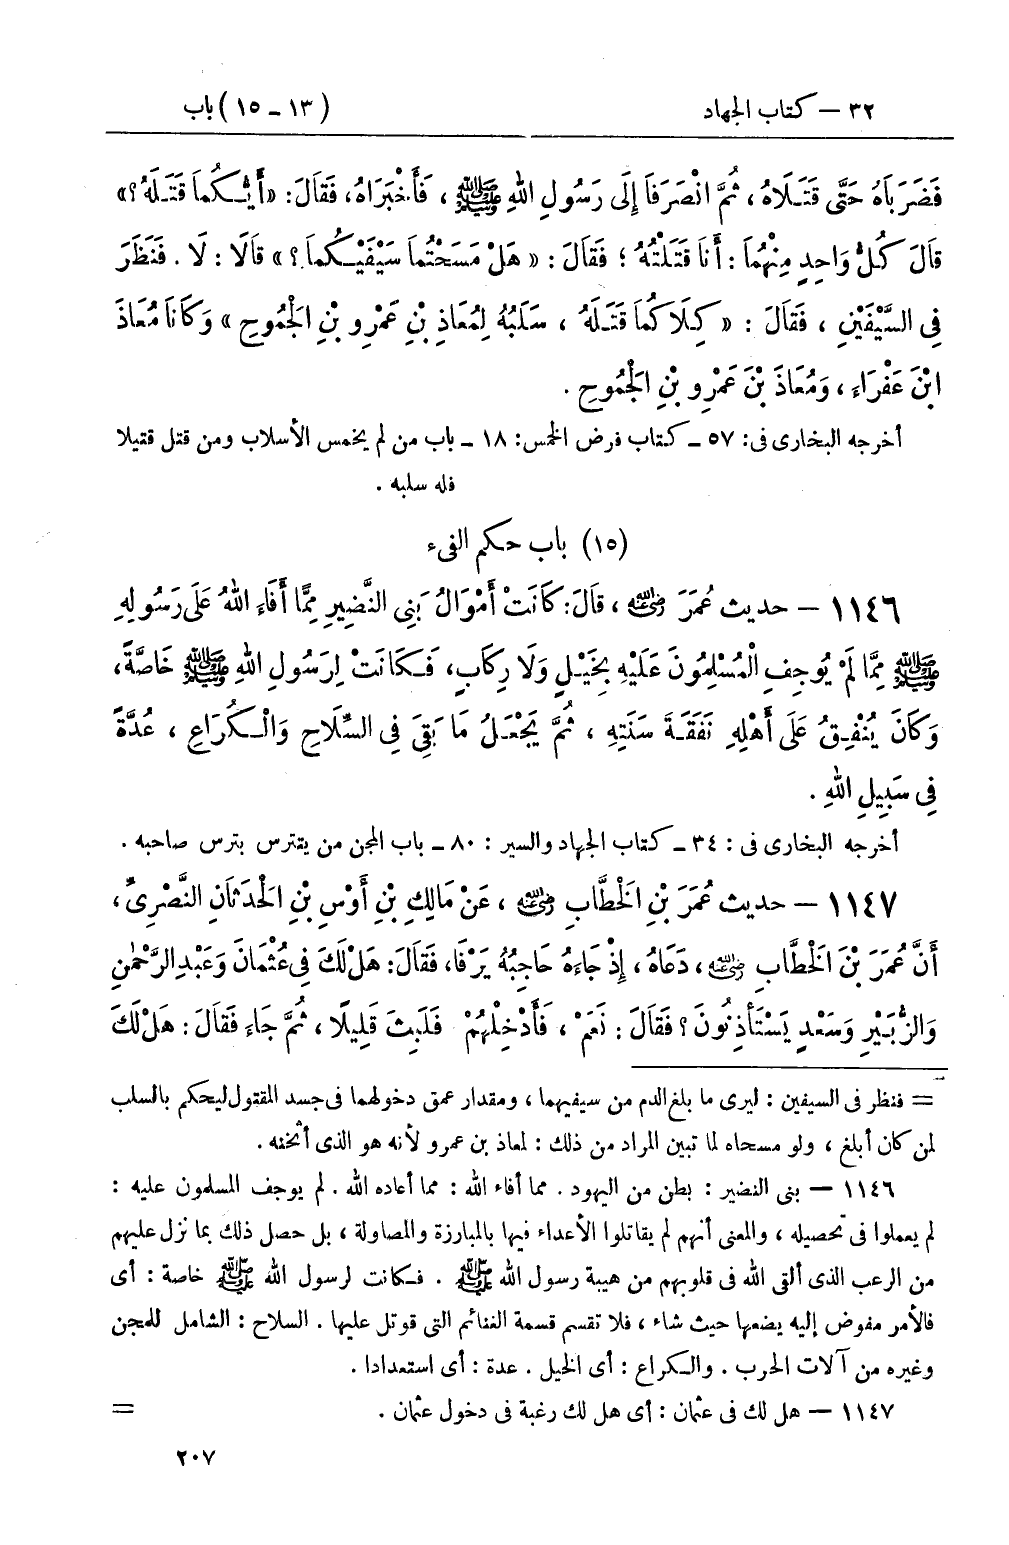 ٣٢ — كتاب الجهاد (١٣ ـ ١٥) باب
فَضَرَبَاهُ حَتَّى قَتَلَاهُ ، ثُمَّ انْصَرَفَا إِلَى رَسُولِ اللهِ ﷺ ، فَأَخْبَرَاهُ، فَقَالَ: «أَيُّكُمَا قَتَلَهُ؟»
قَالَ كُلُّ وَاحِدٍ مِنْهُمَا : أَنَا قَتَلْتُهُ ؛ فَقَالَ : « هَلْ مَسَحْتُمَا سَيْفَيْكُمَا ؟ » قَالَا : لَا . فَنَظَرَ
فِى السَّيْفَيْنِ ، فَقَالَ : « كِلَا كُمَا قَتَلَهُ ، سَلَبُهُ لِمُعَاذِ بْنِ عَمْرِو بْنِ الْجَمُوحِ » وَكَانَا مُعَاذَ
ابْنَ عَفْرَاءَ ، وَمُعَاذَ بْنَ عَمْرِو بْنِ الْجَمُوحِ .
أخرجه البخارى فى: ٥٧ ـ كتاب فرض الخمس: ١٨ ـ باب من لم يخمس الأسلاب ومن قتل قتيلا
فله سلبه .
(١٥) باب حكم الفىء
١١٤٦ — حديث عُمَرَ رضي الله عنه ، قَالَ: كَانَتْ أَمْوَالُ بَنِى النَّضِيرِ مِمَّا أَفَاءَ اللهُ عَلَى رَسُولِهِ
ﷺ مِمَّا لَمْ يُوجِفِ الْمُسْلِمُونَ عَلَيْهِ بِخَيْلٍ وَلَا رِكَابٍ، فَكَانَتْ لِرَسُولِ اللهِ ﷺ خَاصَّةً،
وَكَانَ يُنْفِقُ عَلَى أَهْلِهِ نَفَقَةَ سَنَتِهِ ، ثُمَّ يَجْعَلُ مَا بَقِىَ فِى السِّلَاحِ وَالْكُرَاعِ ، عُدَّةً
فِى سَبِيلِ اللهِ .
أخرجه البخارى فى : ٣٤ ـ كتاب الجهاد والسير : ٨٠ ـ باب المجن من يتترس بترس صاحبه .
١١٤٧ — حديث عُمَرَ بْنِ الْخَطَّابِ رضي الله عنه ، عَنْ مَالِكِ بْنِ أَوْسِ بْنِ الْحَدَثَانِ النَّصْرِىِّ ،
أَنَّ عُمَرَ بْنَ الْخَطَّابِ رضي الله عنه ، دَعَاهُ ، إِذْ جَاءَهُ حَاجِبُهُ يَرْفَا، فَقَالَ: هَلْ لَكَ فِى عُثْمَانَ وَعَبْدِ الرَّحْمٰنِ
وَالزُّبَيْرِ وَسَعْدٍ يَسْتَأْذِنُونَ ؟ فَقَالَ : نَعَمْ ، فَأَدْخِلْهُمْ فَلَبِثَ قَلِيلًا ، ثُمَّ جَاءَ فَقَالَ : هَلْ لَكَ
= فنظر فى السيفين : ليرى ما بلغ الدم من سيفيهما ، ومقدار عمق دخولهما فى جسد المقتول ليحكم بالسلب
لمن كان أبلغ ، ولو مسحاه لما تبين المراد من ذلك : لمعاذ بن عمرو لأنه هو الذى أثخنه .
١١٤٦ — بنى النضير : بطن من اليهود . مما أفاء الله : مما أعاده الله . لم يوجف المسلمون عليه :
لم يعملوا فى تحصيله ، والمعنى أنهم لم يقاتلوا الأعداء فيها بالمبارزة والمصاولة ، بل حصل ذلك بما نزل عليهم
من الرعب الذى ألقى الله فى قلوبهم من هيبة رسول الله ﷺ . فكانت لرسول الله ﷺ خاصة : أى
فالأمر مفوض إليه يضعها حيث شاء ، فلا تقسم قسمة الغنائم التى قوتل عليها . السلاح : الشامل للمجن
وغيره من آلات الحرب . والكراع : أى الخيل . عدة : أى استعدادا .
١١٤٧ — هل لك فى عثمان : أى هل لك رغبة فى دخول عثمان . =
٢٠٧